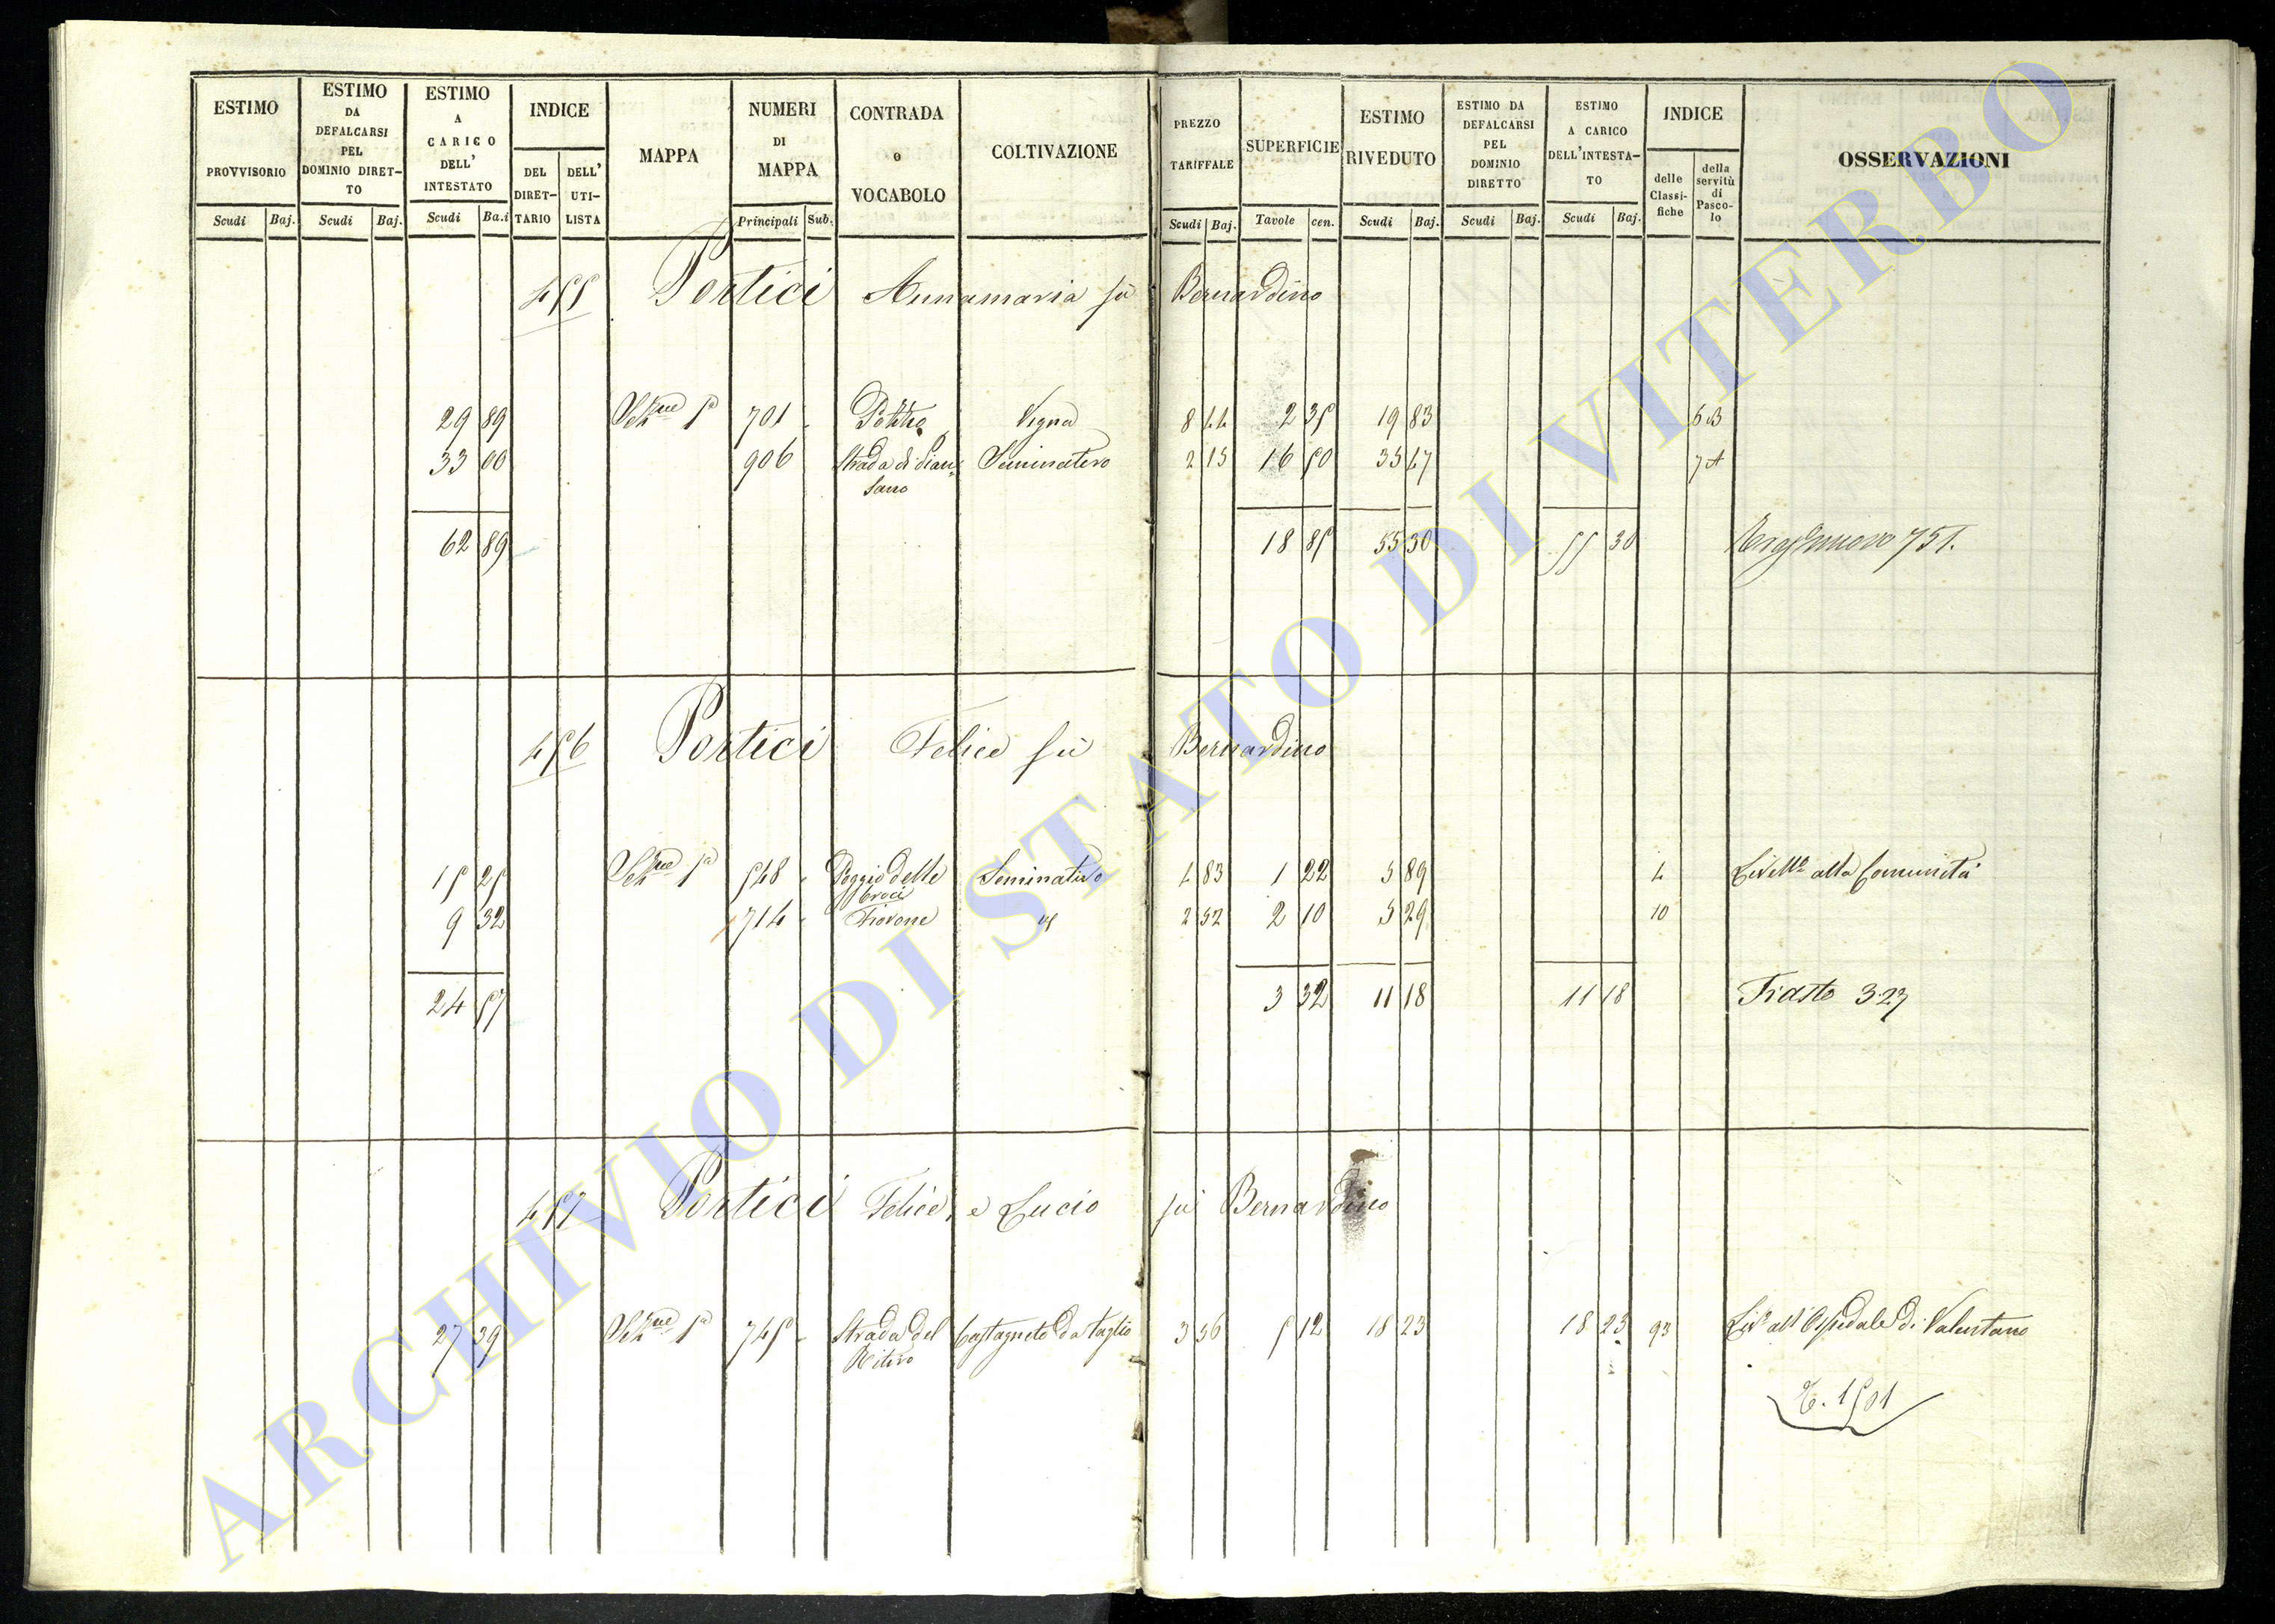 ESTIMO PROVVISORIO
ESTIMO DA DEFALCARSI PEL DOMINIO DIRET-TO
ESTIMO A CARICO DELL' INTESTATO
INDICE
DEL DIRET-TARIO
DELL' UTI-LISTA
MAPPA
NUMERI DI MAPPA
CONTRADA o VOCABOLO
COLTIVAZIONE
PREZZO TARIFFALE
SUPERFICIE
ESTIMO RIVEDUTO
ESTIMO DA DEFALCARSI PEL DOMINIO DIRETTO
ESTIMO A CARICO DELL'INTESTA-TO
INDICE
delle Classi-fiche
della servitù di Pasco-lo
OSSERVAZIONI
Scudi Baj. Scudi Baj. Scudi Ba.i Principali Sub. Scudi Baj. Tavole cen. Scudi Baj. Scudi Baj. Scudi Baj.
455 Portici Annamaria fù Bernardino
29 89 Sez.ne 1ª 701 Vigna 8 44 2 35 19 83 6 B
33 00 906 Strada di Pian-sano Seminativo 2 15 16 50 35 47 7 A
62 89 18 85 55 30 55 30 751.
456 Portici Felice fù Bernardino
15 25 Sez.ne 1ª 548 Poggio delle Croci Seminativo 4 83 1 22 5 89 4 Livello alla Comunità
9 32 714 Fiovone id 2 52 2 10 5 29 10
24 57 3 32 11 18 11 18 Trasto 327
457 Portici Felice, e Lucio fù Bernardino
27 39 Sez.ne 1ª 745 Strada del Ritiro Castagneto da taglio 3 56 5 12 18 23 18 23 93 Liv.o all'Ospedale di Valentano
T. 1501
ARCHIVIO DI STATO DI VITERBO